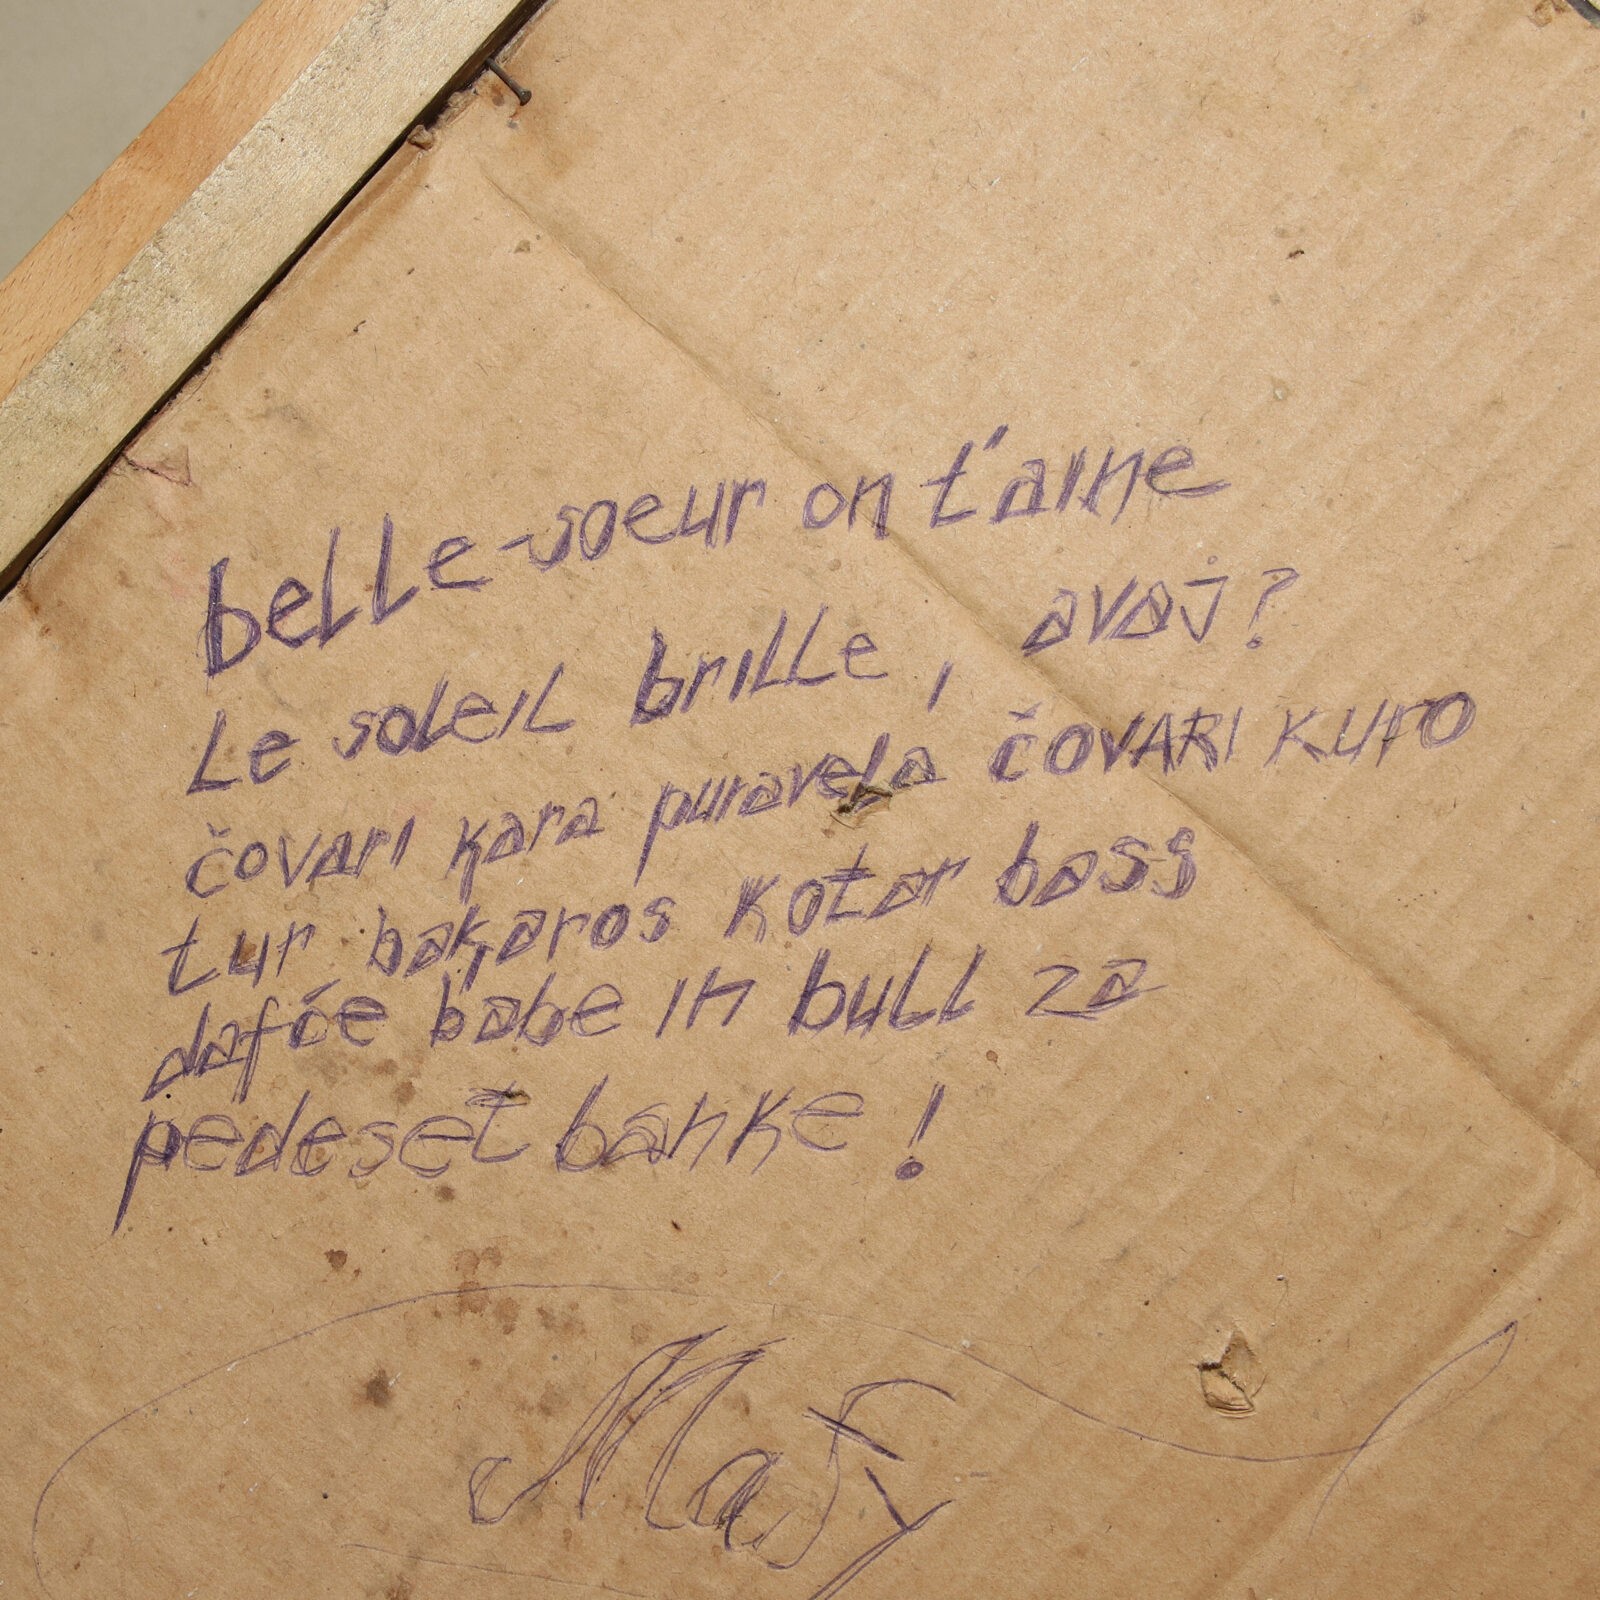 belle-soeur on t'aine
Le soleil brille, avaj?
čovari kara puravela čOVARI KURO
tur bakaros kotor bass
dafće babe in bull za
pedeset banke!
Mafy